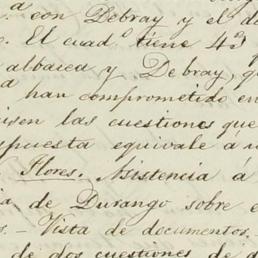 a con Debray y el d
. El cuad.º tiene 43
albacea y Debray, q
a han comprometido en
isen las cuestiones que
puesta equivale a u
Flores. Asistencia á
ia de Durango sobre e
s. — Vista de documentos.
de dos cuestiones de d